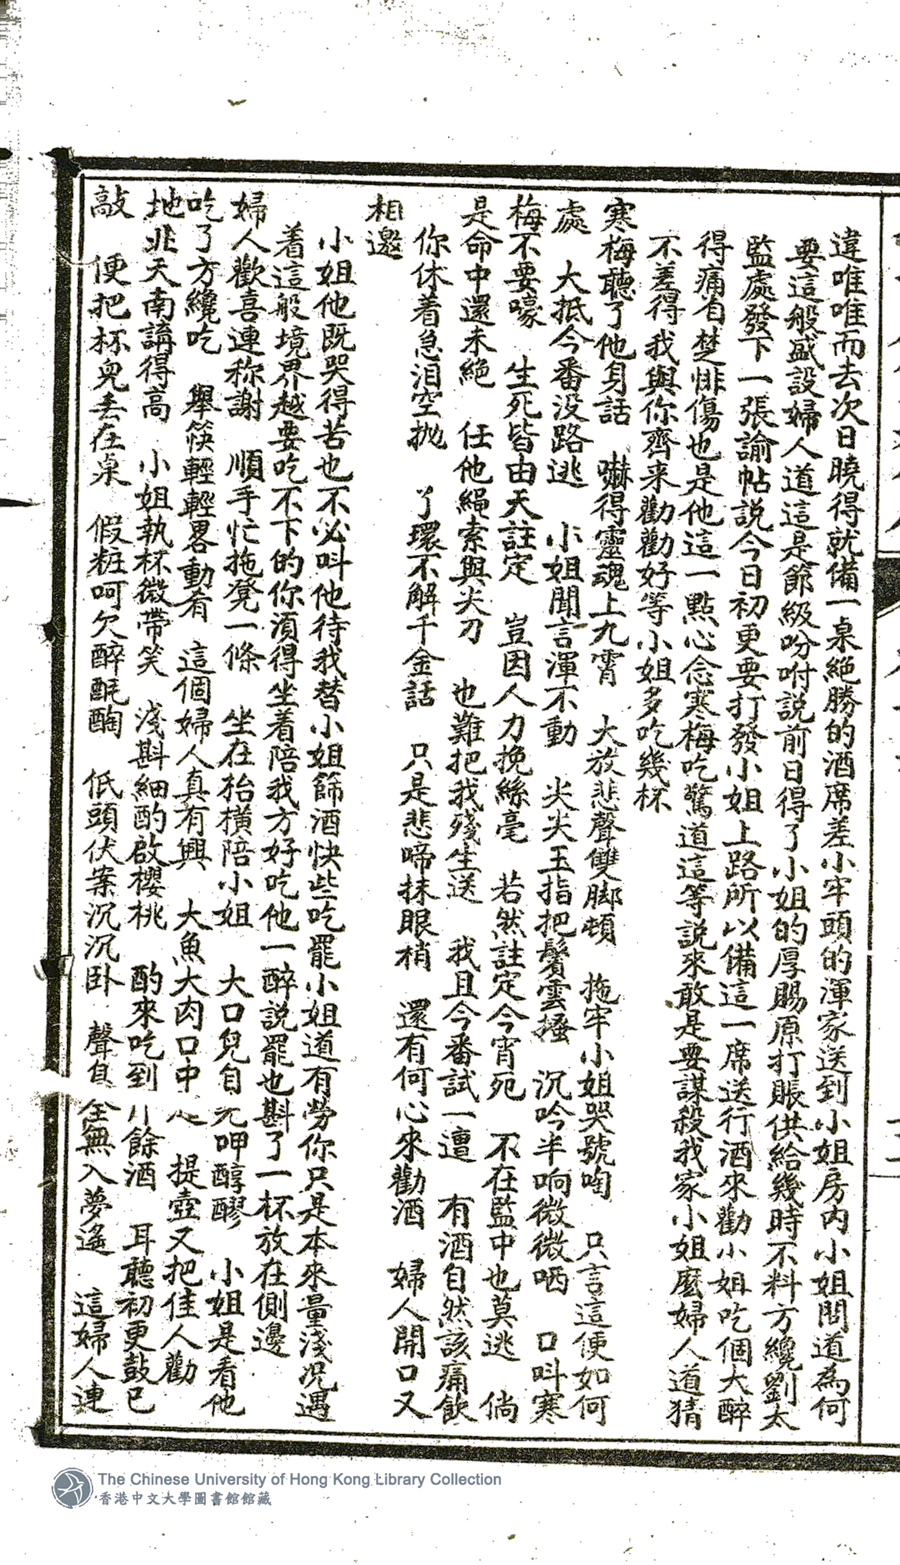 違唯唯而去次日曉得就備一桌絕勝的酒席差小牢頭的渾家送到小姐房內小姐問道為何
要這般盛設婦人道這是節級吩咐說前日得了小姐的厚賜原打賬供給幾時不料方纔劉太
監處發下一張諭帖説今日初更要打發小姐上路所以備這一席送行酒來勸小姐吃個大醉
得痛自楚悱傷也是他這一點心念寒梅吃驚道這等説來敢是要謀殺我家小姐麼婦人道猜
不差得我與你齊来勸勸好等小姐多吃幾杯
寒梅聽了他身話 嚇得靈魂上九霄 大放悲聲雙脚頓 拖牢小姐哭號啕 只言這便如何
處 大抵今番没路逃 小姐聞言渾不動 尖尖玉指把鬢雲搔 沉吟半响微微哂 口叫寒
梅不要嚎 生死皆由天註定 豈因人力挽絲毫 若然註定今宵死 不在監中也莫逃 倘
是命中還未絶 任他繩索與尖刀 也難把我殘生送 我且今番試一遭 有酒自然該痛飲
你休着急泪空抛 了環不解千金話 只是悲啼抹眼梢 還有何心來勸酒 婦人開口又
相邀
小姐他既哭得苦也不必叫他待我替小姐篩酒快些吃罷小姐道有勞你只是本來量淺况遇
着這般境界越要吃不下的你須得坐着陪我方好吃他一醉說罷也斟了一杯放在側邊
婦人歡喜連称謝 順手忙拖凳一條 坐在枱横陪小姐 大口兒自 呷醇醪 小姐是看他
吃了方纔吃 舉筷輕輕畧動肴 這個婦人真有興 大魚大肉口中 提壺又把佳人勸
地北天南講得高 小姐執杯微帶笑 淺斟細酌啟櫻桃 酌來吃到 餘酒 耳聽初更鼓已
敲 便把杯兒丢在桌 假粧呵欠醉酕醄 低頭伏案沉沉卧 聲息全無入夢遙 這婦人連
The Chinese University of Hong Kong Library Collection
香港中文大學圖書館館藏